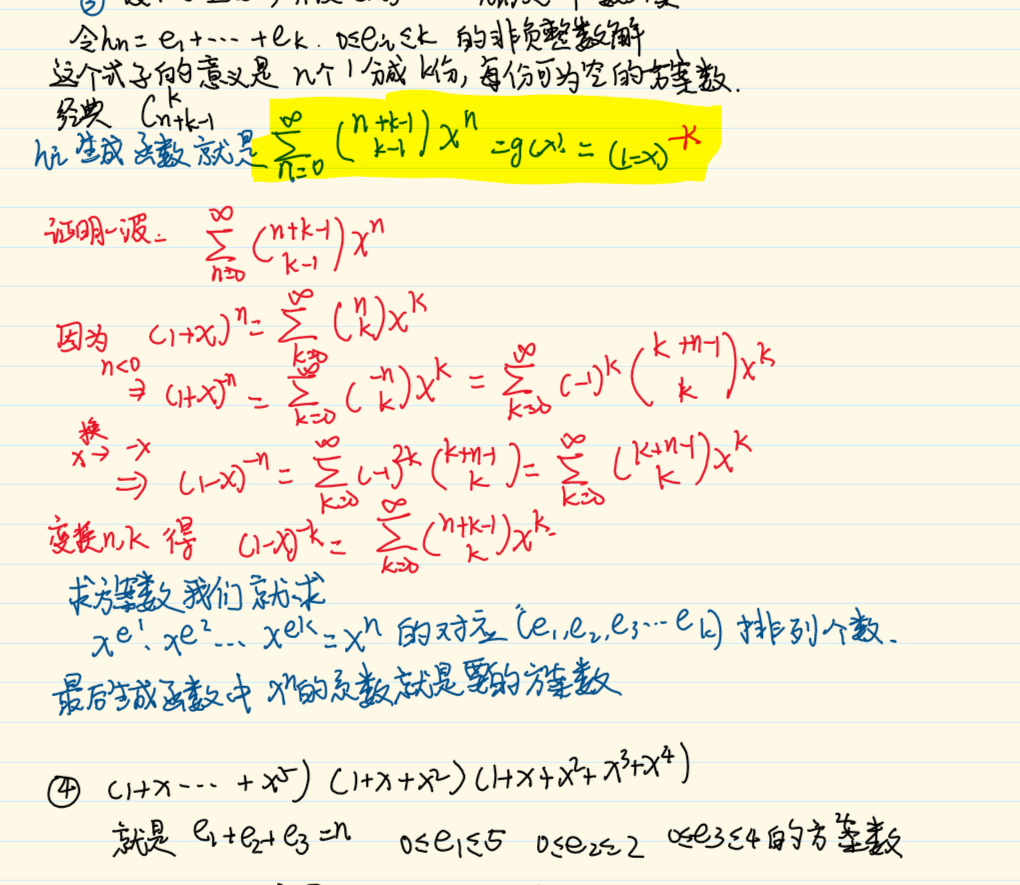 ③
令hn = e1 + ··· + ek. 0≤ei≤k 的非负整数解
这个式子的意义是 n个1分成k份, 每份可为空的方案数.
经典 C_{n+k-1}^{k}
hn 生成函数就是 \sum_{n=0}^{∞} \binom{n+k-1}{k-1} x^n = g(x) = (1-x)^{-k}
证明一波: \sum_{n=0}^{∞} \binom{n+k-1}{k-1} x^n
因为 (1+x)^n = \sum_{k=0}^{∞} \binom{n}{k} x^k
n<0 ⇒ (1+x)^{-n} = \sum_{k=0}^{∞} \binom{-n}{k} x^k = \sum_{k=0}^{∞} (-1)^k \binom{k+n-1}{k} x^k
换 x→-x ⇒ (1-x)^{-n} = \sum_{k=0}^{∞} (-1)^{2k} \binom{k+n-1}{k} = \sum_{k=0}^{∞} \binom{k+n-1}{k} x^k
变换n,k 得 (1-x)^{-k} = \sum_{k=0}^{∞} \binom{n+k-1}{k} x^k.
求方案数我们就求
x^{e1}·x^{e2}··· x^{ek} = x^n 的对应 (e1,e2,e3···ek) 排列个数.
最后生成函数中 x^n的系数就是要的方案数
④ (1+x··· + x^5) (1+x+x^2) (1+x+x^2+x^3+x^4)
就是 e1+e2+e3=n 0≤e1≤5 0≤e2≤2 0≤e3≤4 的方案数